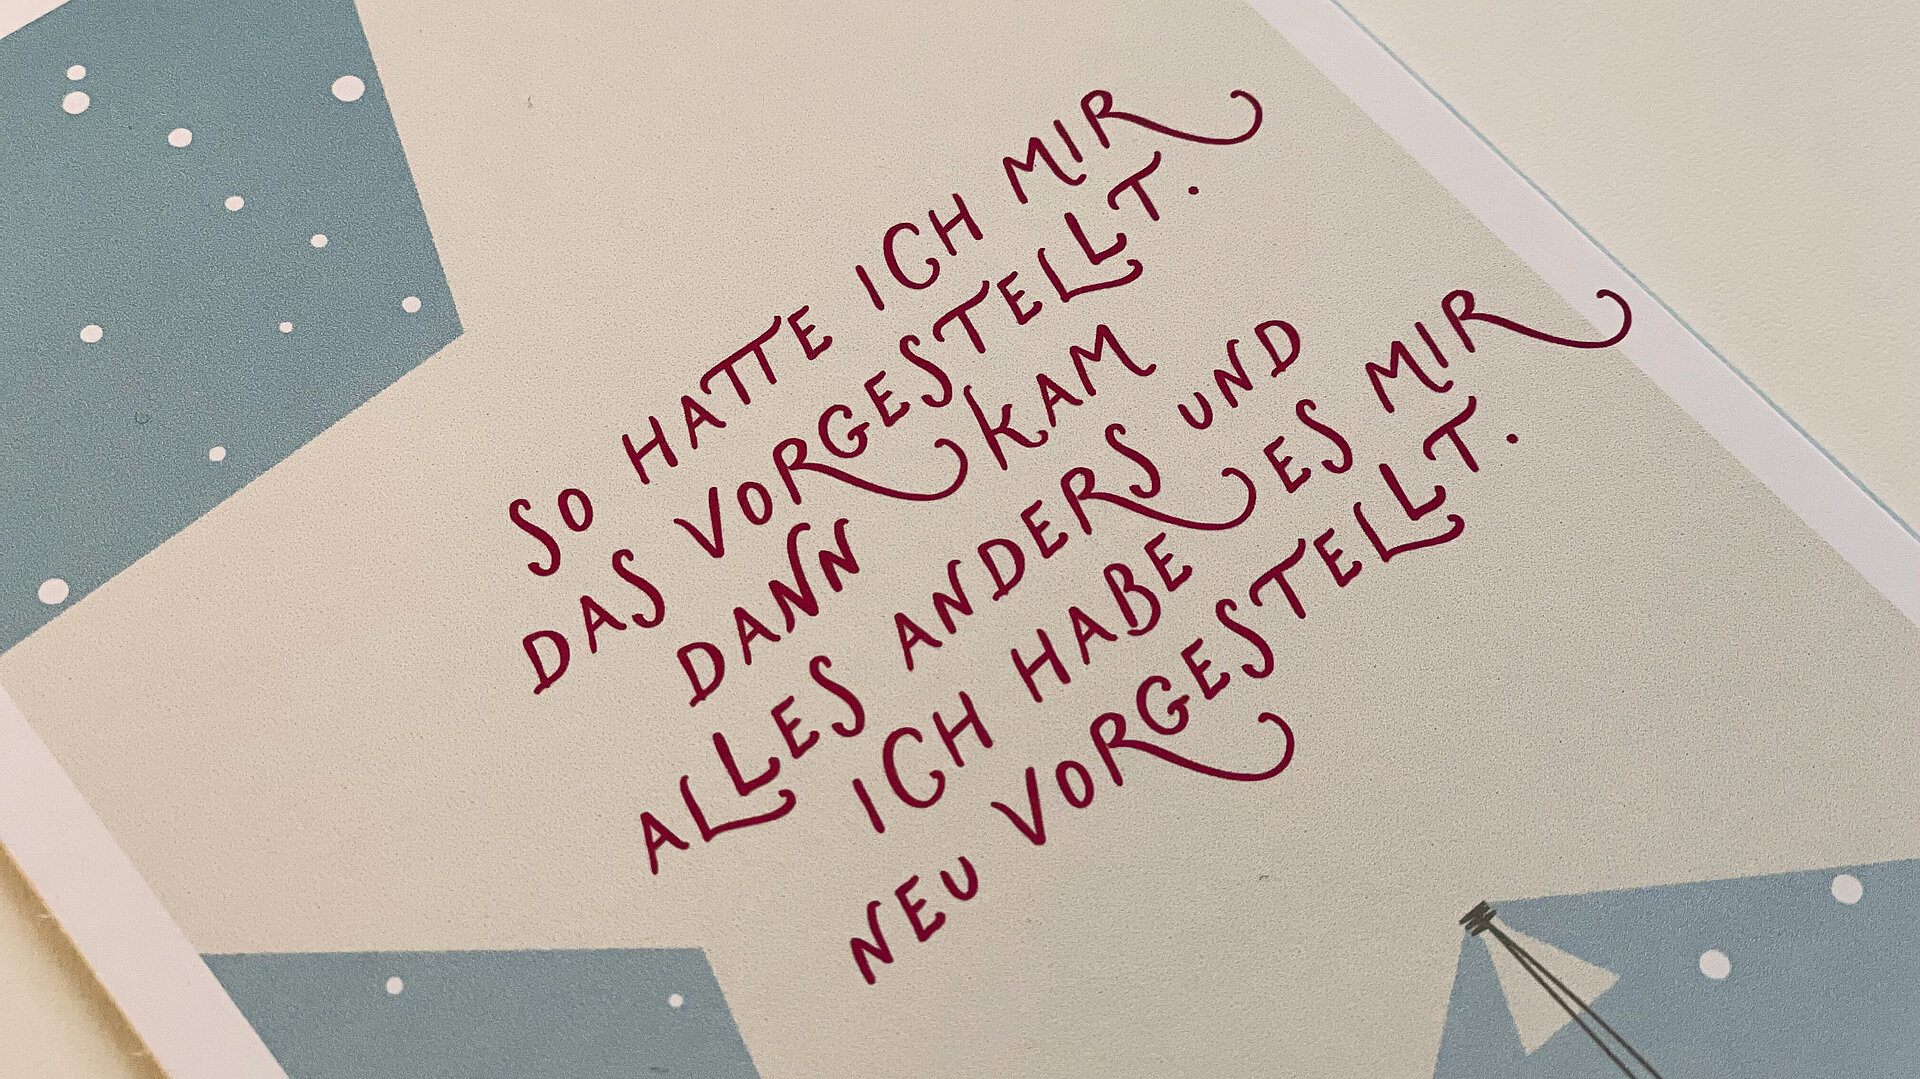 SO HATTE ICH MIR
DAS VORGESTELLT.
DANN KAM
ALLES ANDERS UND
ICH HABE ES MIR
NEU VORGESTELLT.